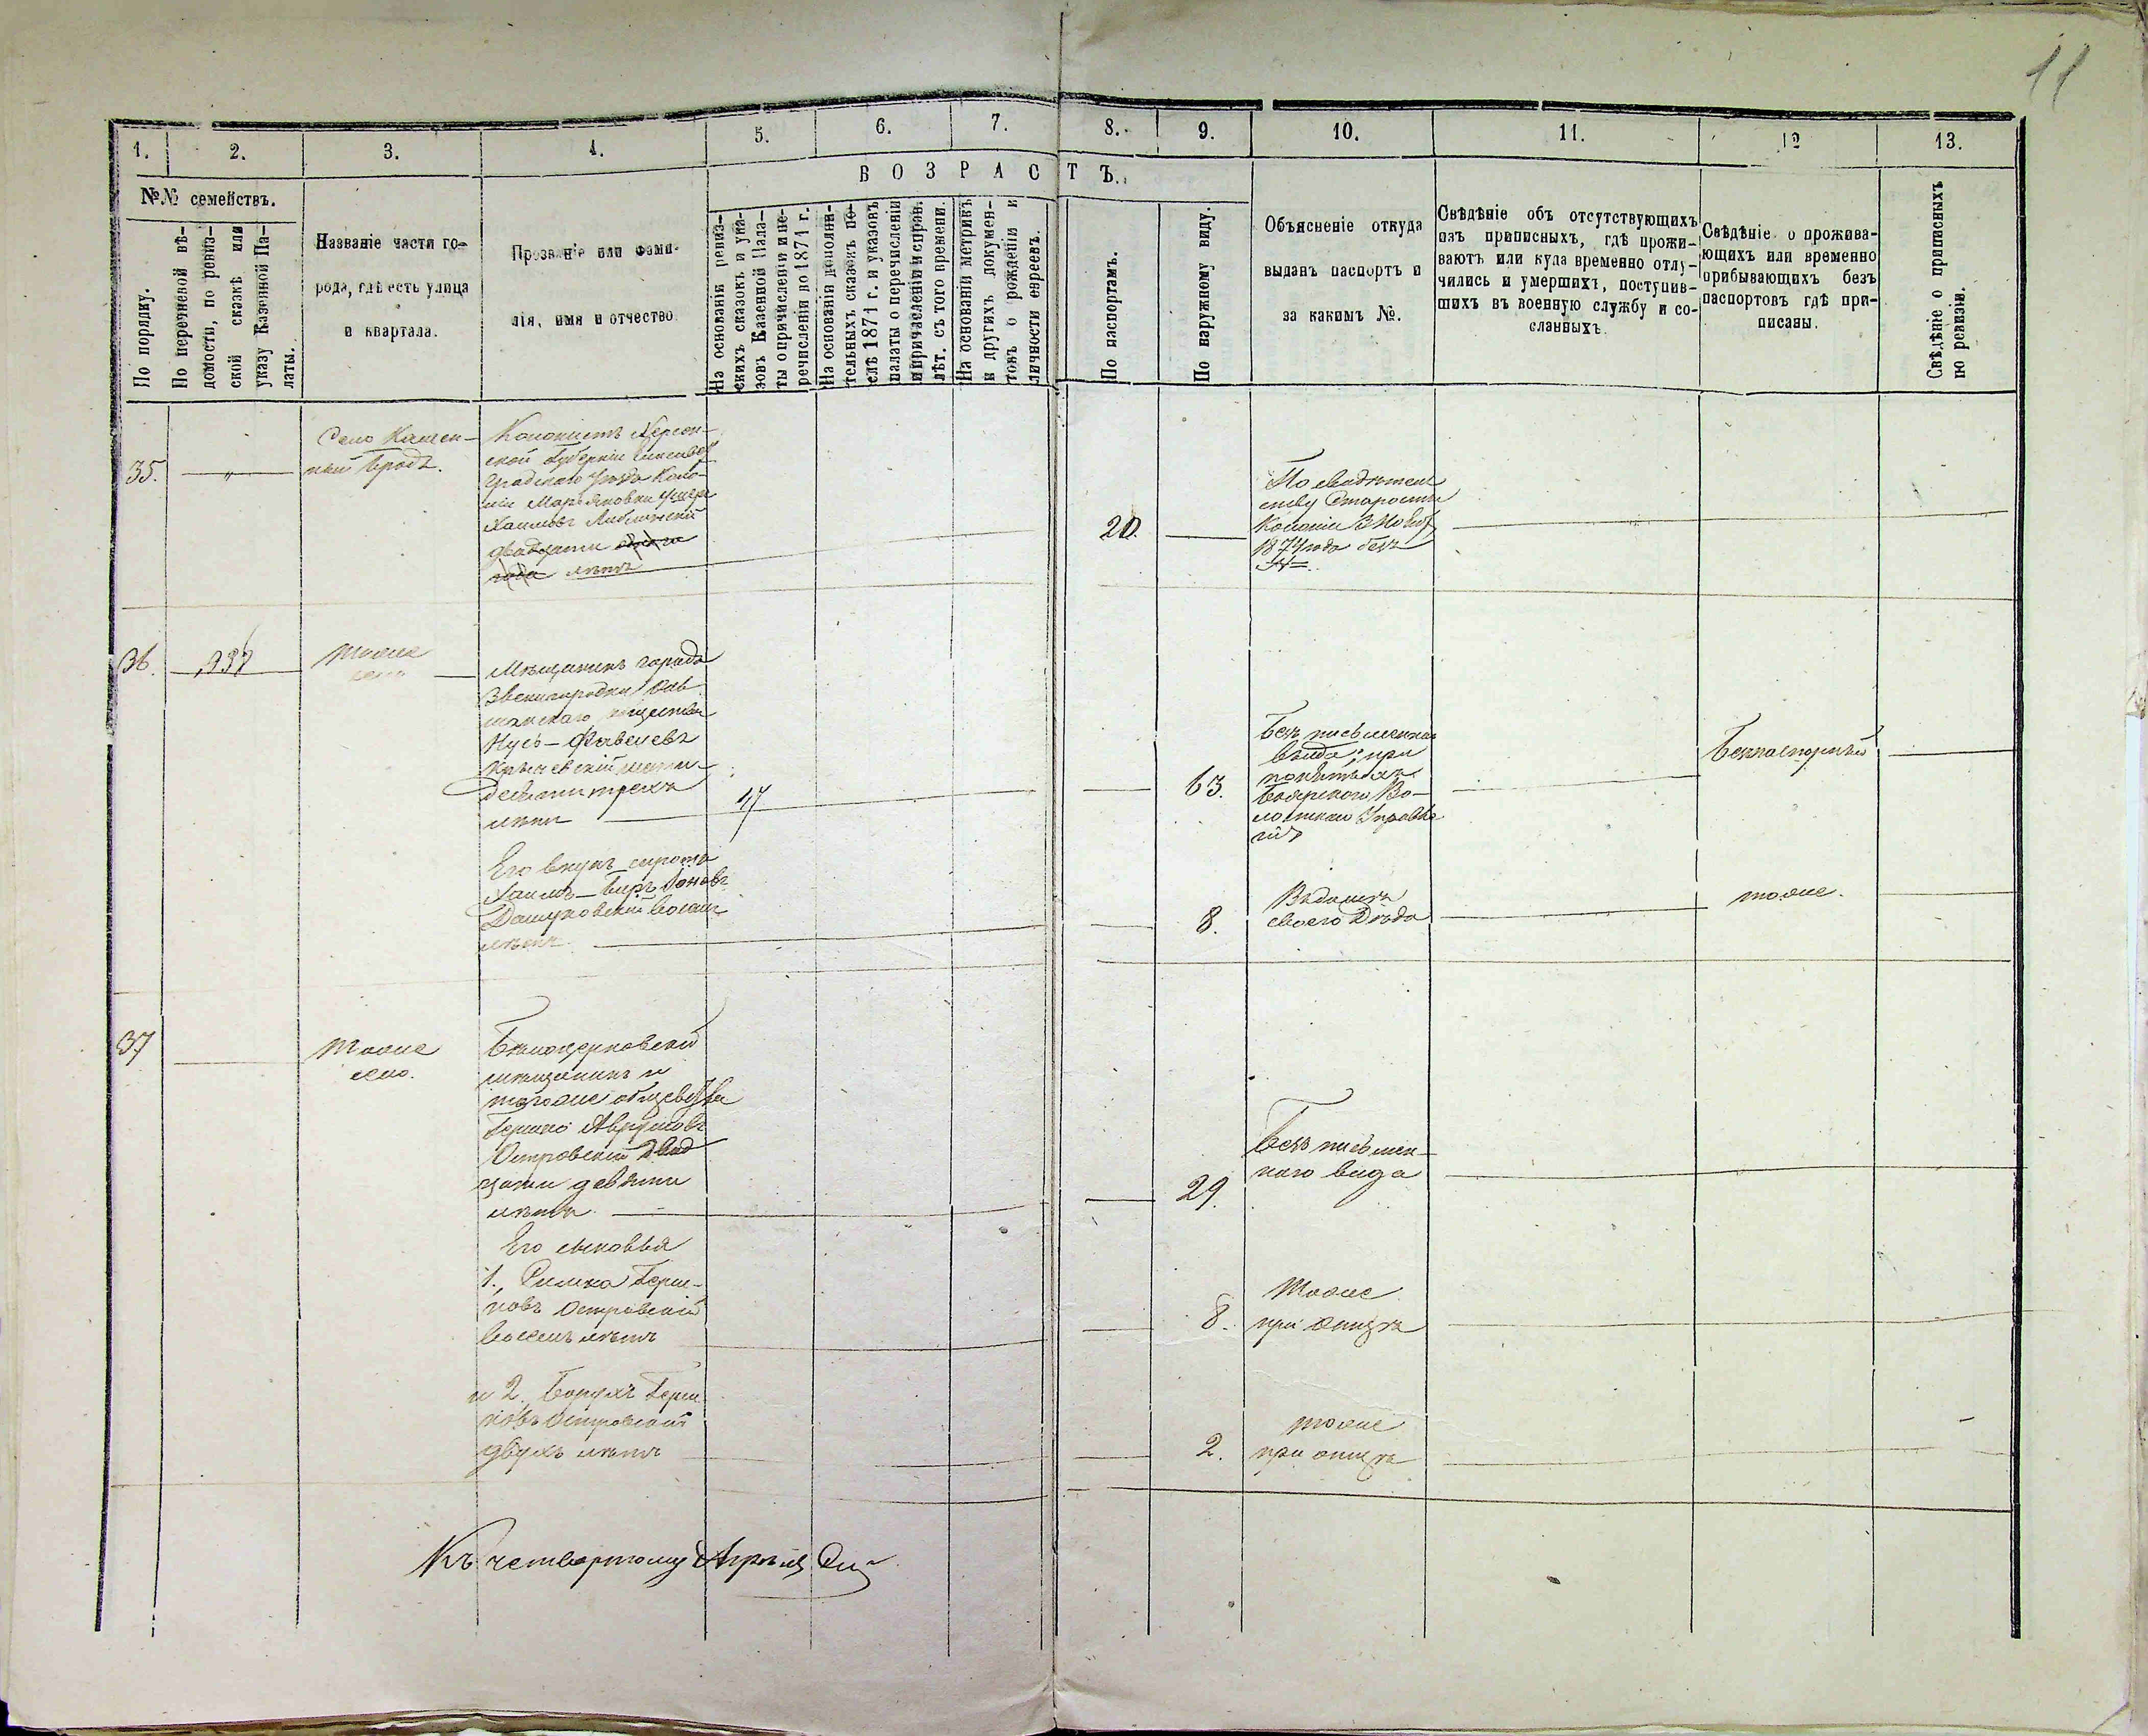 11
1.
2.
3.
4.
5.
6.
7.
8.
9.
10.
11.
12
13.
№№ семействъ.
По порядку.
По перечневой вѣ-
домости, по ревиз-
ской сказкѣ или
указу Казенной Па-
латы.
Названіе части го-
рода, гдѣ есть улица
и квартала.
Прозваніе или фами-
лія, имя и отчество
ВОЗРАСТЪ.
На основаніи ревиз-
скихъ сказокъ и ука-
зовъ Казенной Пала-
ты о причисленіи и пе-
речисленіи до 1871 г.
На основаніи дополни-
тельныхъ сказокъ по-
слѣ 1871 г. и указовъ
палаты о перечисленіи
и причисленіи и справ.
лѣт. съ того времени.
На основаніи метрикъ
и другихъ докумен-
товъ о рожденіи и
личности евреевъ.
По паспортамъ.
По наружному виду.
Объясненіе откуда
выданъ паспортъ и
за какимъ №.
Свѣдѣніе объ отсутствующихъ
изъ приписныхъ, гдѣ прожи-
ваютъ или куда временно отлу-
чились и умершихъ, поступив-
шихъ въ военную службу и со-
сланныхъ.
Свѣдѣніе о прожива-
ющихъ или временно
прибывающихъ безъ
паспортовъ гдѣ при-
писаны.
Свѣдѣніе о приписныхъ
по ревизіи.
35.
"
Село Камен-
ный Бродъ.
Колонистъ Херсон-
ской Губерніи Елисавет
градскаго уѣзда Коло-
ніи
Хаимовъ Люблинскій
двадцати одного
года лѣтъ
20.
По свидѣтель
ству Старосты
Колоніи
1874 года безъ
№
36.
тоже
село
Мѣщанинъ города
Звенигородки
общества
Нусь-
десяти трехъ
лѣтъ
47
63.
Безъ письменнаго
вида, при
Боярскаго Во-
лостнаго Правле
нія
Безпаспортный
Его внукъ сирота
Хаимъ-
восьми
лѣтъ
8.
своего Дѣда
тоже.
37
Тоже
село.
Бѣлоцерковскій
мѣщанинъ и
тогоже общества
Гершко
Островскій двад
цати девяти
лѣтъ
29.
Безъ письмен-
наго вида
Его сыновья
1., Герш-
ковъ Островскій
восемь лѣтъ
8.
Тоже
при отцѣ
и 2, Борухъ Герш
ковъ Островскій
двухъ лѣтъ
2.
тоже
при отцѣ
Къ четвертому